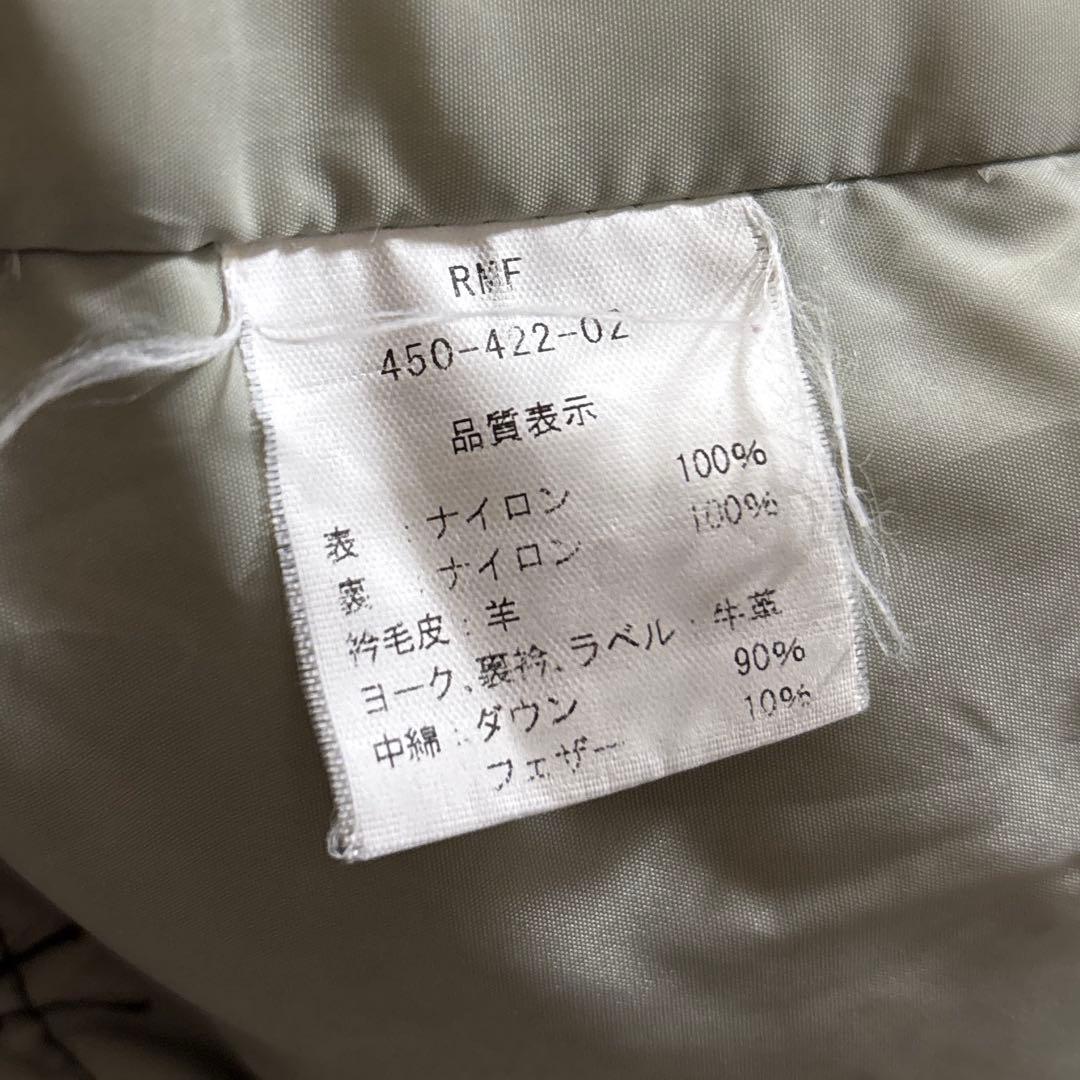 RMF
450-422-02
品質表示
表 : ナイロン 100%
裏 : ナイロン 100%
衿毛皮 : 羊
ヨーク、裏衿、ラベル : 牛革
中綿 : ダウン 90%
フェザー 10%